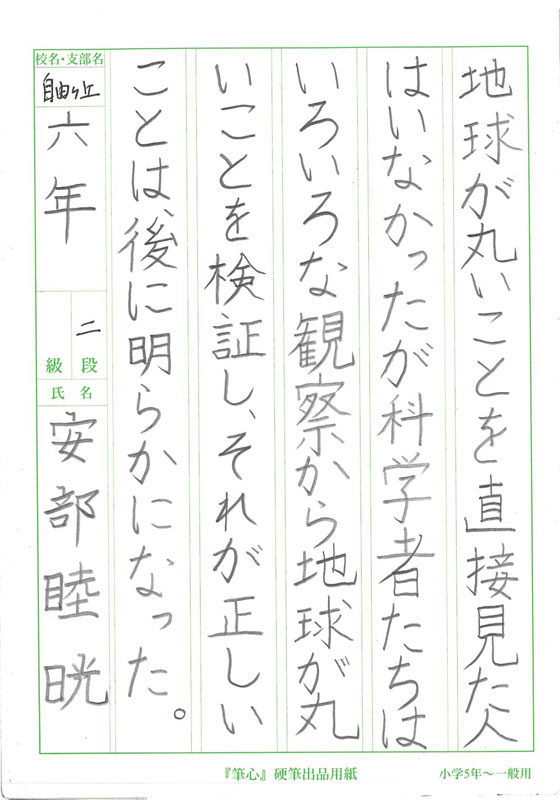 地球が丸いことを直接見た人
はいなかったが科学者たちは
いろいろな観察から地球が丸
いことを検証し、それが正しい
ことは、後に明らかになった。
校名・支部名
自由ヶ丘
六年
二
段
級
氏名
安部睦晄
『筆心』硬筆出品用紙
小学5年〜一般用